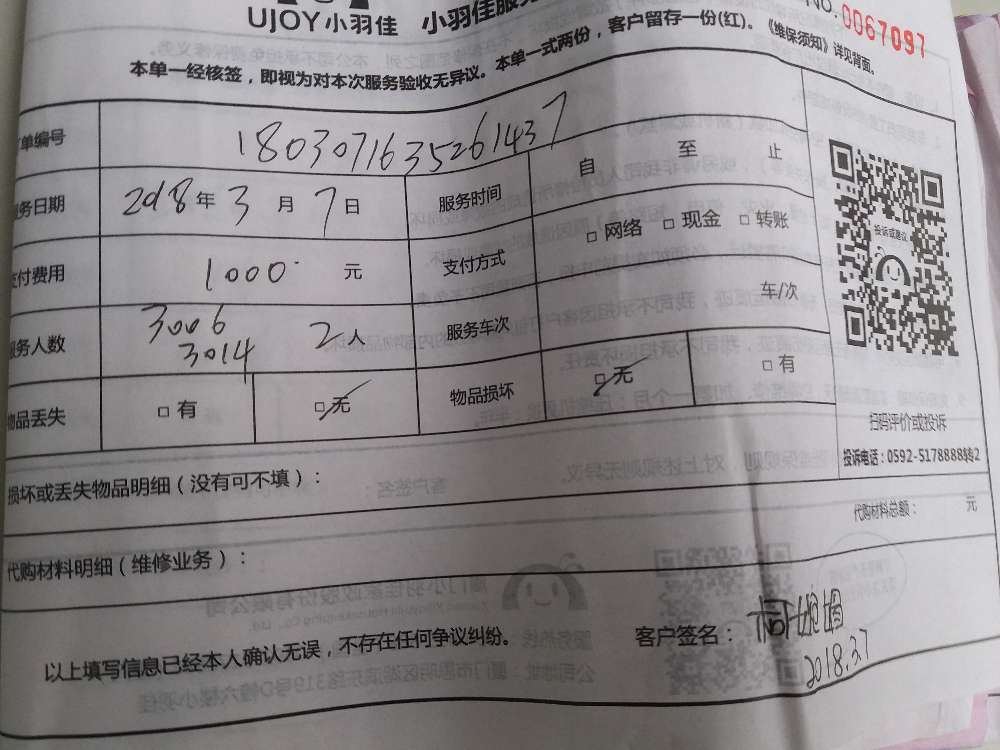 UJOY小羽佳 小羽佳服务
NO. 0067097
本单一经核签，即视为对本次服务验收无异议。本单一式两份，客户留存一份(红)。《维保须知》详见背面。
单编号 1803071635261437
服务日期 2018年3月7日 服务时间 自 至 止
支付费用 1000 元 支付方式 □网络 □现金 □转账
服务人数 3006 3014 2人 服务车次 车/次
物品丢失 □有 □无 物品损坏 □无 □有
投诉或建议
扫码评价或投诉
投诉电话：0592-5178888转2
损坏或丢失物品明细（没有可不填）：
代购材料明细（维修业务）： 代购材料总额： 元
以上填写信息已经本人确认无误，不存在任何争议纠纷。 客户签名：
2018.3.7